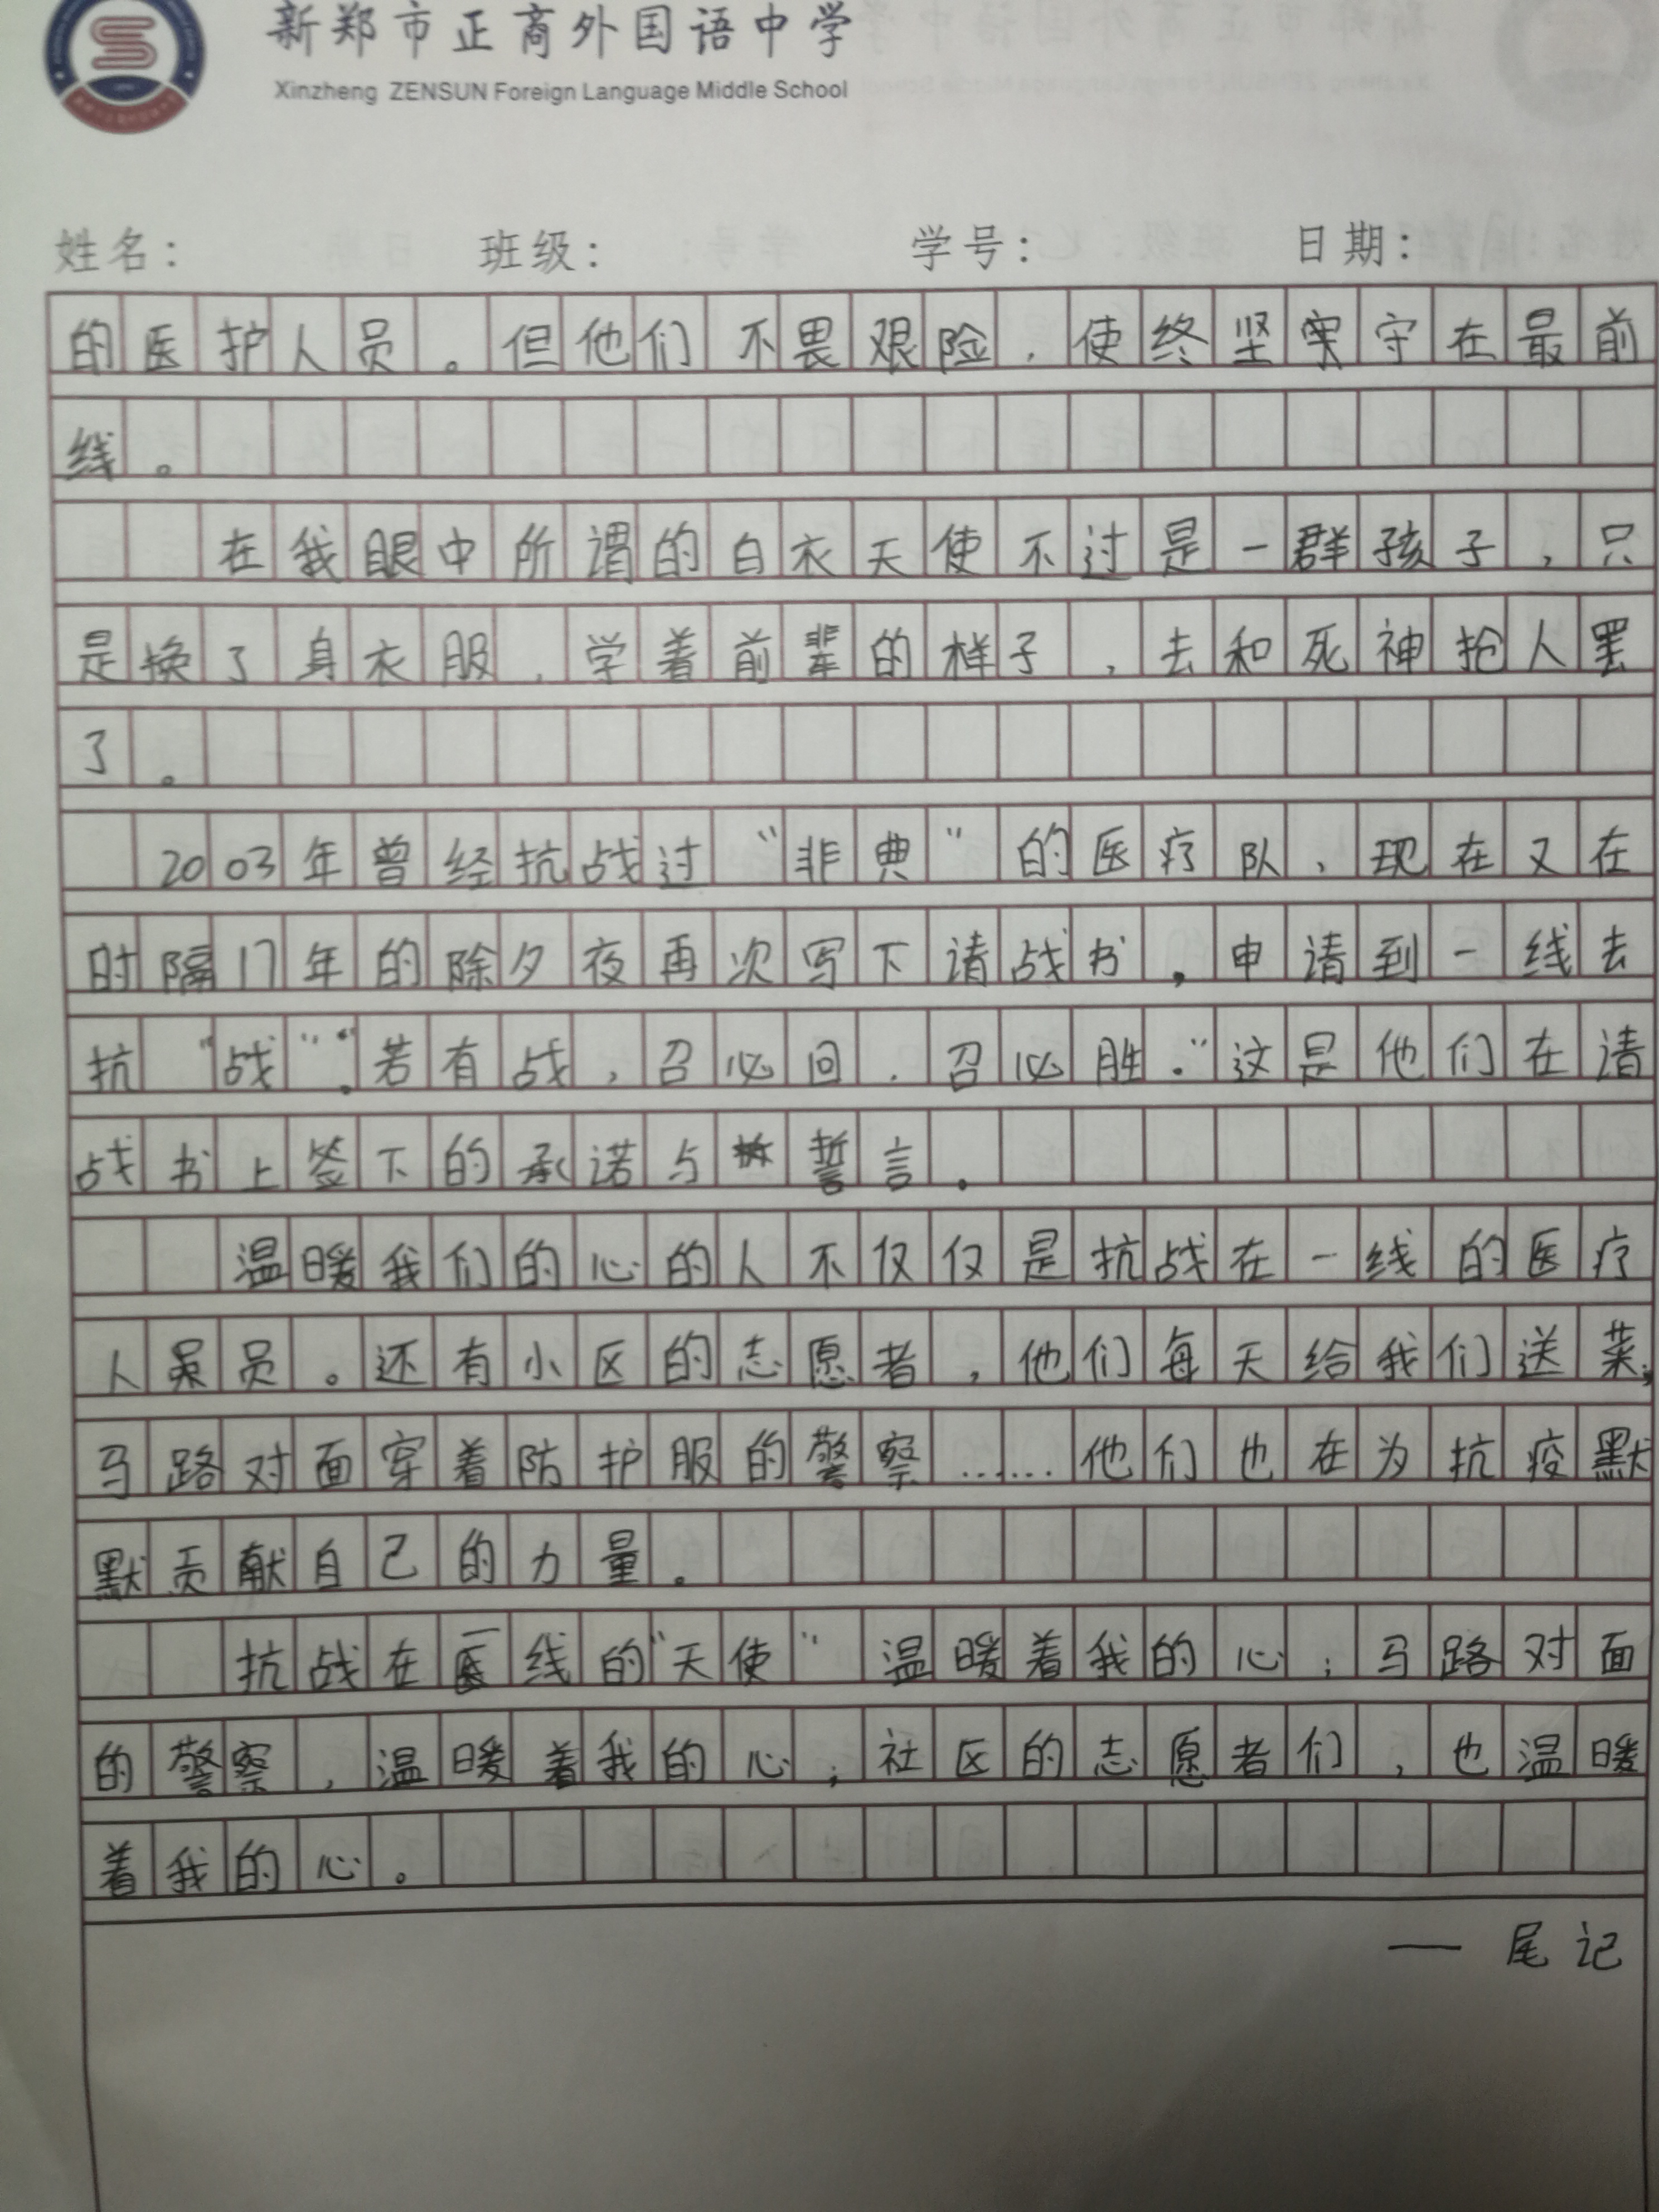 新郑市正商外国语中学
Xinzheng ZENSUN Foreign Language Middle School
姓名： 班级： 学号： 日期：
的医护人员。但他们不畏艰险，使终坚守在最前
线。
在我眼中所谓的白衣天使不过是一群孩子，只
是换了身衣服，学着前辈的样子，去和死神抢人罢
了。
2003年曾经抗战过“非典”的医疗队，现在又在
时隔17年的除夕夜再次写下请战书，申请到一线去
抗“战”。“若有战，召必回，召必胜。”这是他们在请
战书上签下的承诺与誓言。
温暖我们的心的人不仅仅是抗战在一线的医疗
人员。还有小区的志愿者，他们每天给我们送菜；
马路对面穿着防护服的警察……他们也在为抗疫默
默贡献自己的力量。
抗战在一线的“天使”温暖着我的心；马路对面
的警察，温暖着我的心；社区的志愿者们，也温暖
着我的心。
——尾记